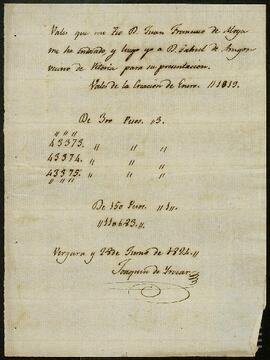 Vales que me Tio D. Juan Francisco de Moya
me ha endosado y luego yo a D. Gabriel de Aragon
vecino de Vitoria para su presentacion.
Vales de la Creacion de Enero. 1819.
De 300 Pesos. 3.
43373. " "
43374. " "
43375. " "
De 150 Pesos. 1
Vergara y 28 de Junio de 1824.
Joaquin de Yrizar